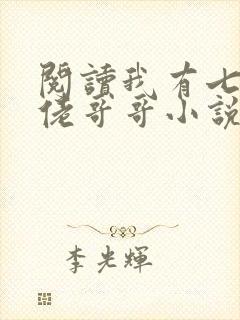 閱讀我有七
佬哥哥小說
李光輝